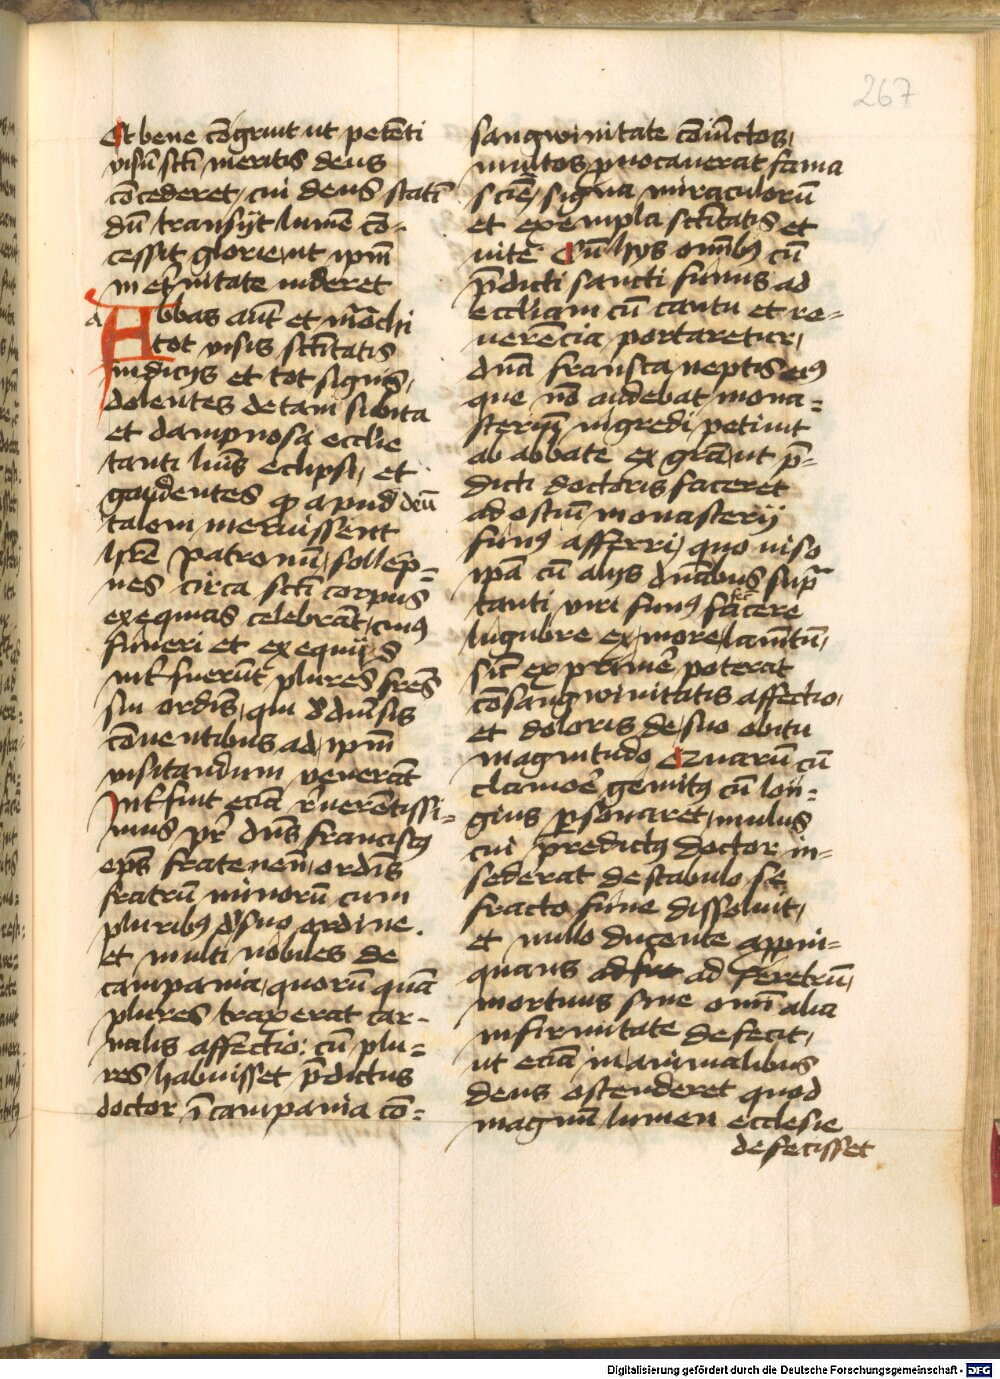 267
Et bene cōgruit ut petēti
visū scti meritis deus
cōcederet, cui deus statī
dū transijt lumē cō-
cessit glorie, ut ipm̄
in et̄nitate videret
a
Abbas aut̄ et mōachi
tot visis sctitatis
indicijs et tot signis,
dolentes de tam subita
et dampnosa ecclie
tanti luīs eclipsi, et
gaudentes qͦ apud deū
talem meruissent
hr̄e patronū, sollēp=
nes circa scti corpus
exequias celebrāt, cuiꝰ
funeri et exequijs
int̄fuerūt plures fr̄es
sui ordīs, qui de diūsis
cōuentibus ad ipm̄
visitandum venerāt
Int̄fuit eciā r̄uerētissi=
mus pr̄ dn̄s franciscꝰ
ep̄s
fratrū minorū cum
pluribꝰ de suo ordine.
et multi nobiles de
campania, quorū quā
plures traxerat car-
nalis affectio: cū plu=
res habuisset p̄dictus
doctor ī campania cō=
sangwinitate cōiūctos,
multos ꝓuocauerat fama
sciē, signa miraculorū
et exempla sctitatis et
uite Cū hijs omībꝰ cū
p̄dicti sancti funus ad
eccliam cū cantu et re=
uerencia portaretur,
dn̄a francisca neptis eiꝰ
que nō audebat mona=
steriū ingredi petiuit
ab abbate ex grā, ut p̄=
dicti doctoris faceret
ad ostiū monasterij
funꝰ afferri, quo uiso
ipā cū alijs dn̄abus supͣ
tanti viri funꝰ facere
lugubre ex more lamtū,
sic̄ exprimē poterat
cōsangwinitatis affectio,
et doloris de suo obitu
magnitudo Quarū cū
clamoē gemitꝰ cū lon=
gius ꝑsonaret, mulus
cui predictꝰ doctor in=
sederat de stabulo se
fracto fune dissoluit,
et nullo ducente appin=
quans ad feretrū,
mortuus sine omī alia
infirmitate defecit,
ut eciā in animalibus
deus ostenderet quod
magnū lumen ecclesie
defecisset
Digitalisierung gefördert durch die Deutsche Forschungsgemeinschaft - DFG